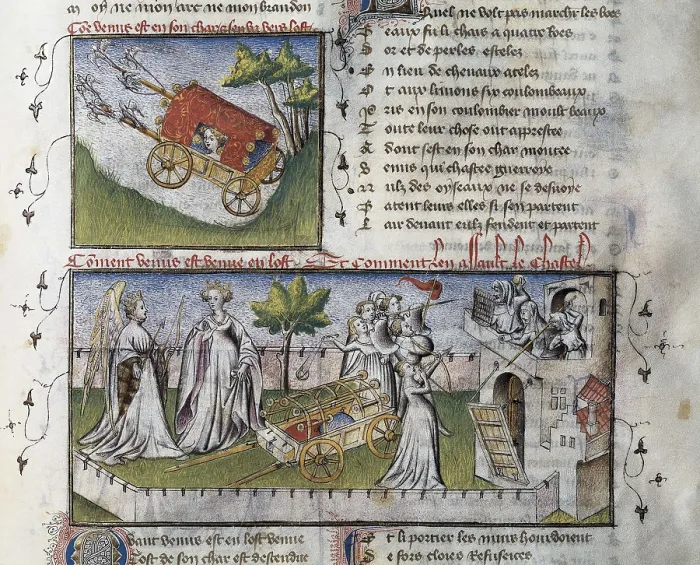 ne mon arc ne mon brandon
Cõe venus est en son char et sen va vers lost
Quel ne volt pas marchir les boes
Beaux fu li chars a quatre roes
Dor et de perles estelez
En lieu de chevaux atelez
Ot aux limons six coulombeaux
Pris en son coulombier moult beaux
Toute leur chose ont apprestee
Adont sest en son char montee
Venus qui chastee guerroye
Nulz des oyseaux ne se desroye
Batent leurs elles si sen partent
Lair devant eulz fendent et partent
Cõment venus est venue en lost
Et comment len assault le chastel
Quant venus est en lost venue
Tost de son char est destendue
Et li portier les murs hourdoient
De fors cloies Refuseices